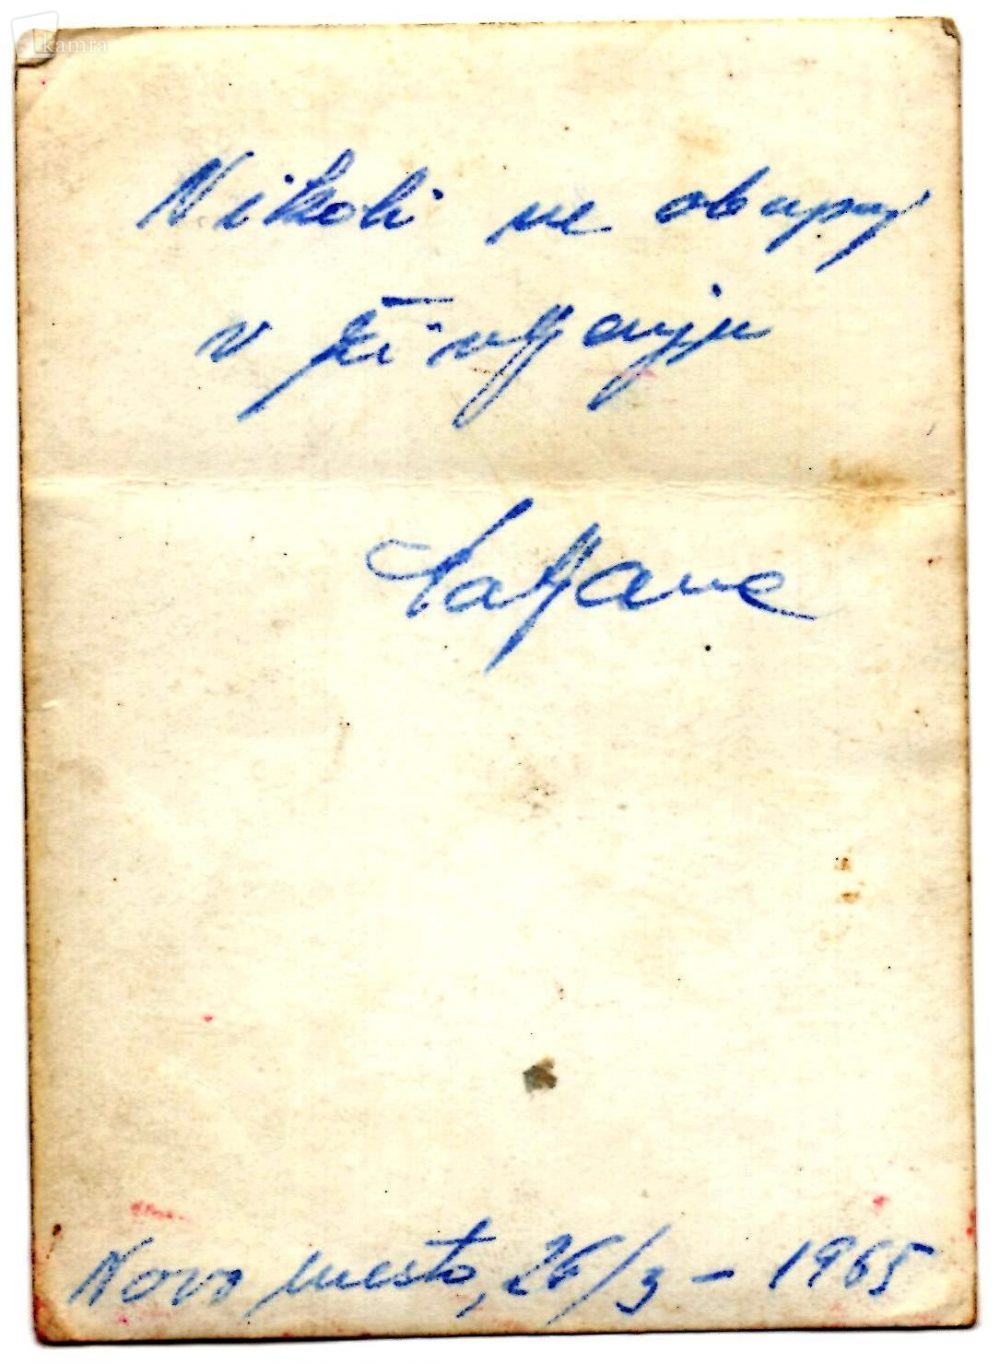 kamra
Nikoli ne obupaj
v življenju
Tatjana
Novo mesto, 26/3 - 1965